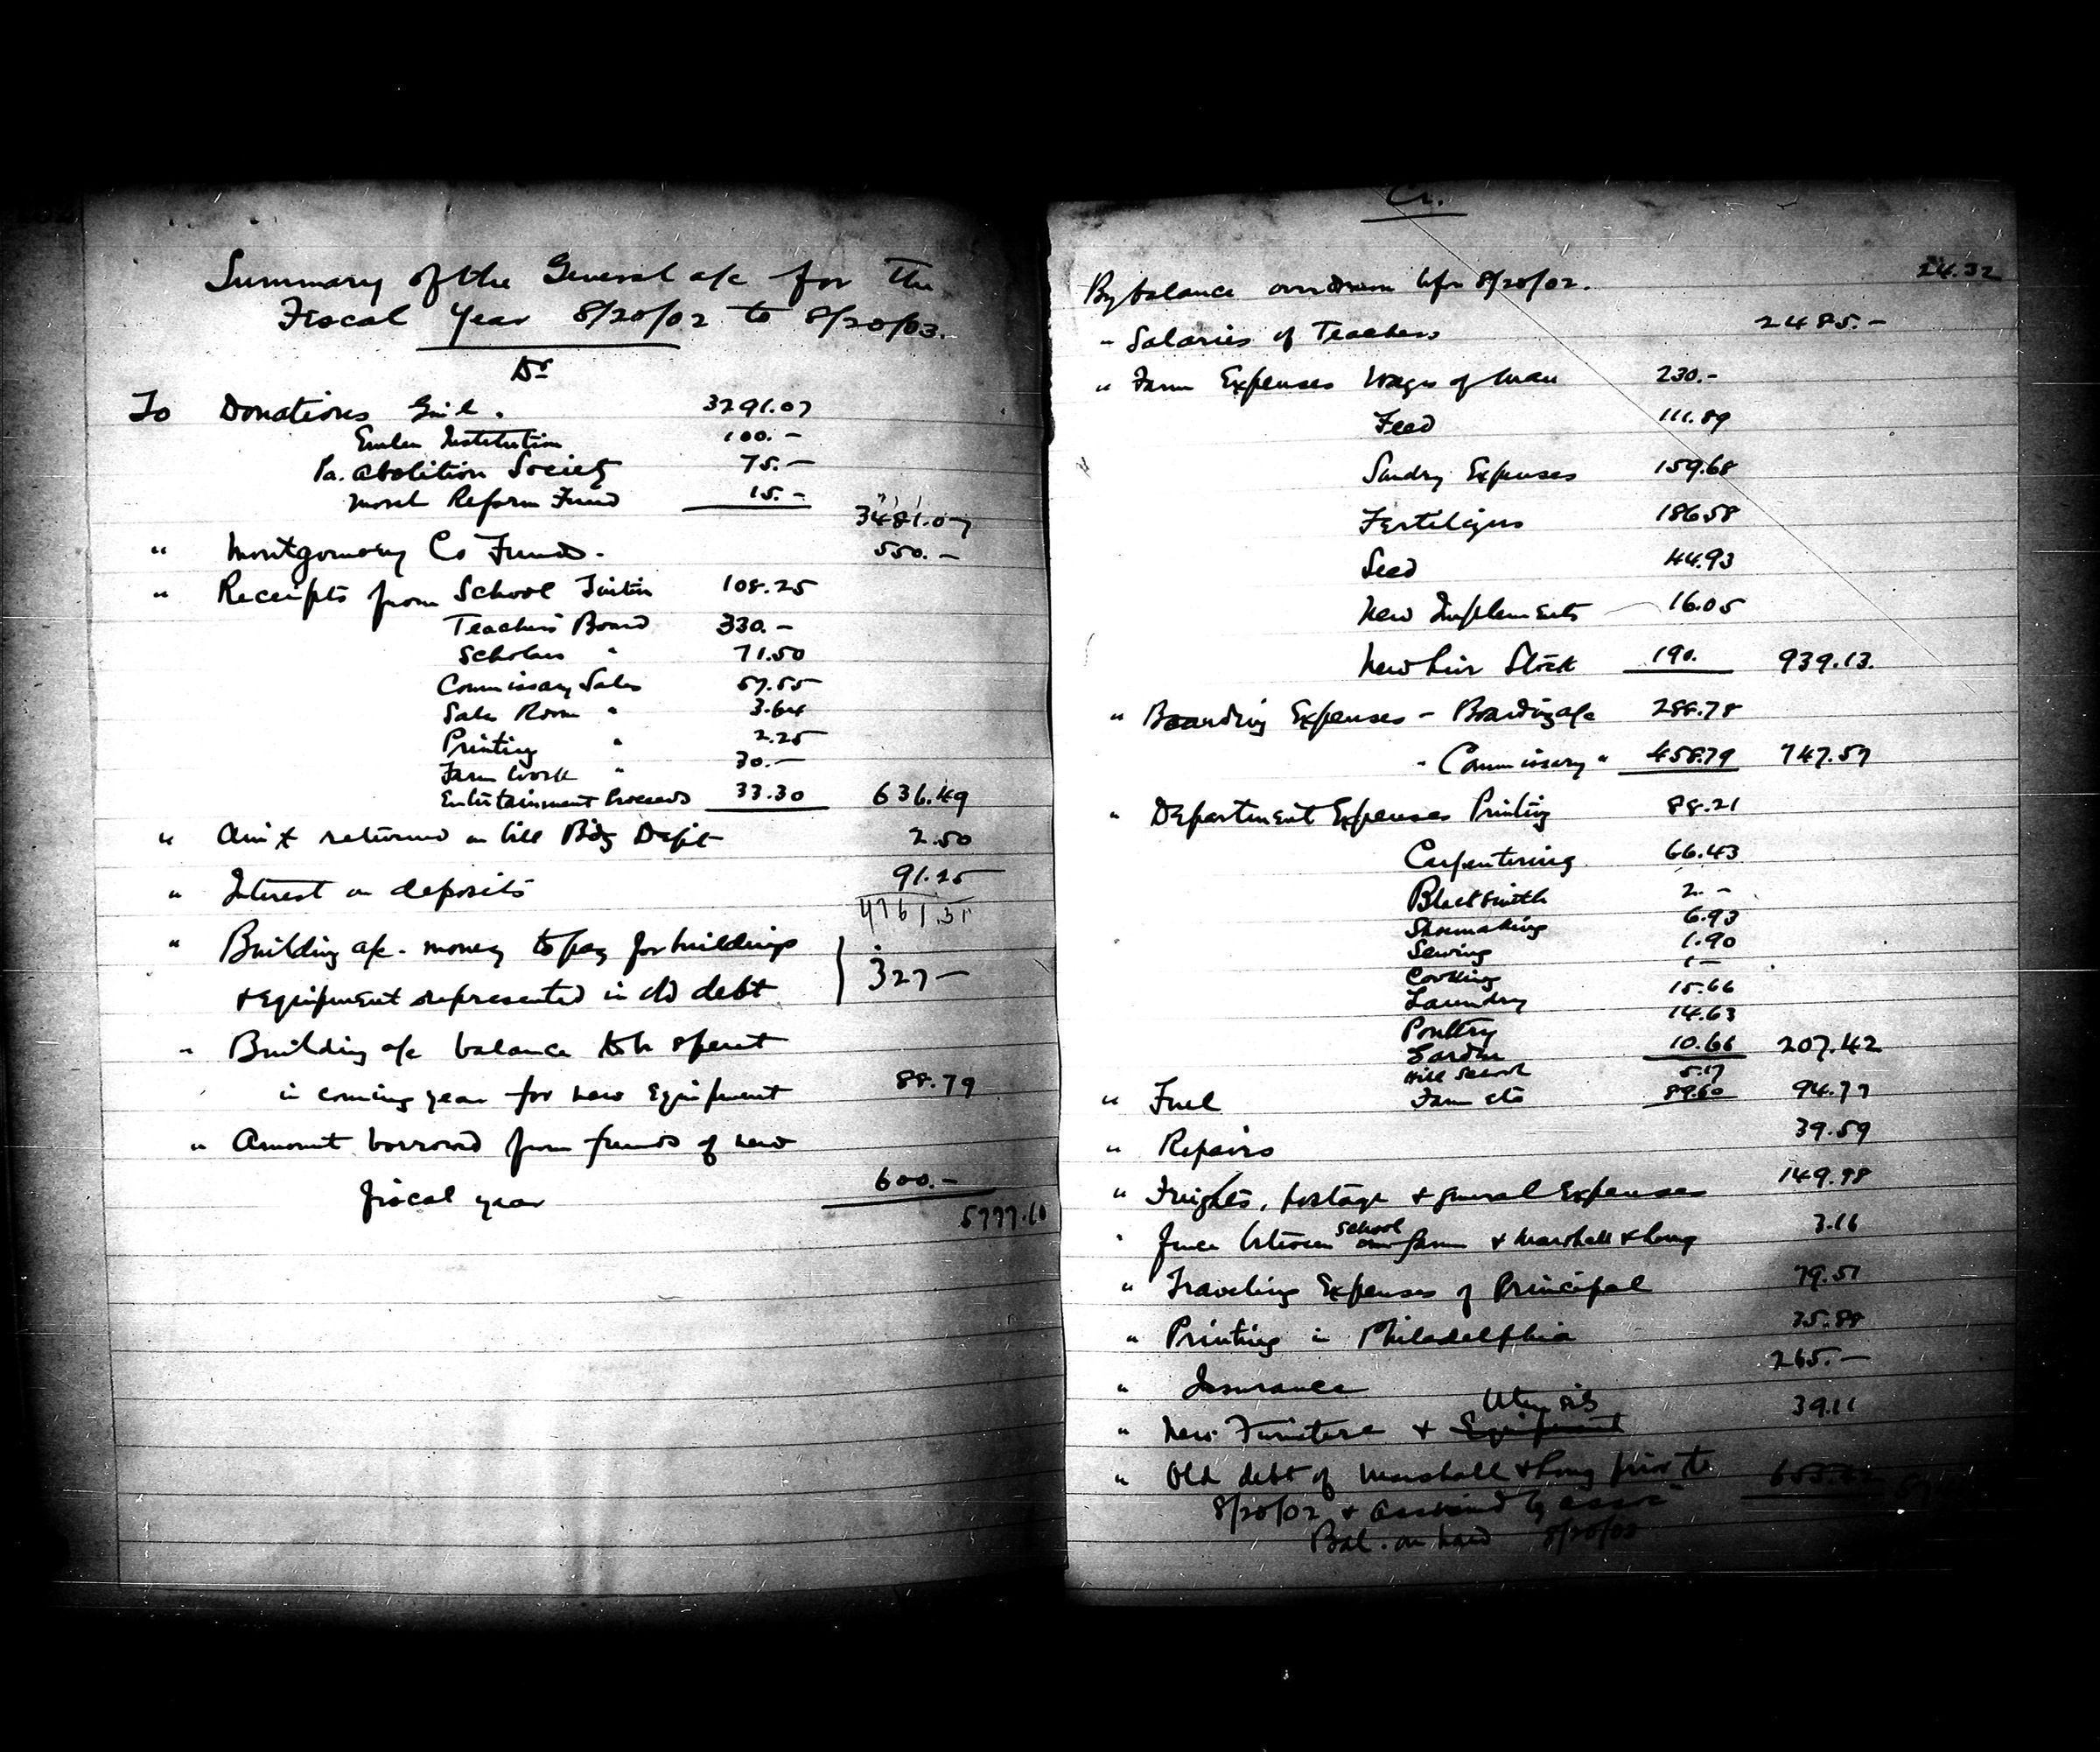 Summary of the General a/c for the
Fiscal Year 8/20/02 to 8/20/03.
Dr
To Donations Gen'l. 3291.07
Emlen Institution 100.—
Pa. Abolition Society 75.—
Moral Reform Fund 15.— 3481.07
" Montgomery Co Fund. 550.—
" Receipts from School Tuition 108.25
Teachers Board 330.—
Scholars " 71.50
Commissary Sales 57.55
Sales Room " 3.64
Printing " 2.25
Farm Work " 30.—
Entertainment Proceeds 33.30 636.49
" Am't returned on bill Bdg Dep't 2.50
" Interest on deposits 91.25
4761.31
" Building a/c - money to pay for buildings
& Equipment represented in old debt 327—
" Building a/c balance to be spent
in coming year for new Equipment 88.79
" Amount borrowed from funds of new
fiscal year 600.—
5777.10
Cr.
By balance overdrawn bfr 8/20/02. 24.32
" Salaries of Teachers 2485.—
" Farm Expenses Wages of Man 230.—
Feed 111.89
Sundry Expenses 159.68
Fertilizers 186.58
Seed 44.93
New Implements 16.05
New Live Stock 190. 939.13
" Boarding Expenses — Boarding a/c 288.78
" Commissary " 458.79 747.57
" Department Expenses Printing 88.21
Carpentering 66.43
Blacksmith 2.—
Shoemaking 6.93
Sewing 1.90
Cooking 1—
Laundry 15.66
Poultry 14.63
Garden 10.66 207.42
Hill School 5.17
" Fuel Farm etc 89.60 94.77
" Repairs 39.59
" Freights, postage & general Expenses 149.98
" Fence between School Farm & Marshall & Long 3.16
" Traveling Expenses of Principal 79.51
" Printing in Philadelphia 35.88
" Insurance 265.—
" New Furniture & Equipment Utensils 39.11
" Old debt of Marshall & Long prior to
8/20/02 & assumed by assoc
Bal. on hand 8/20/03